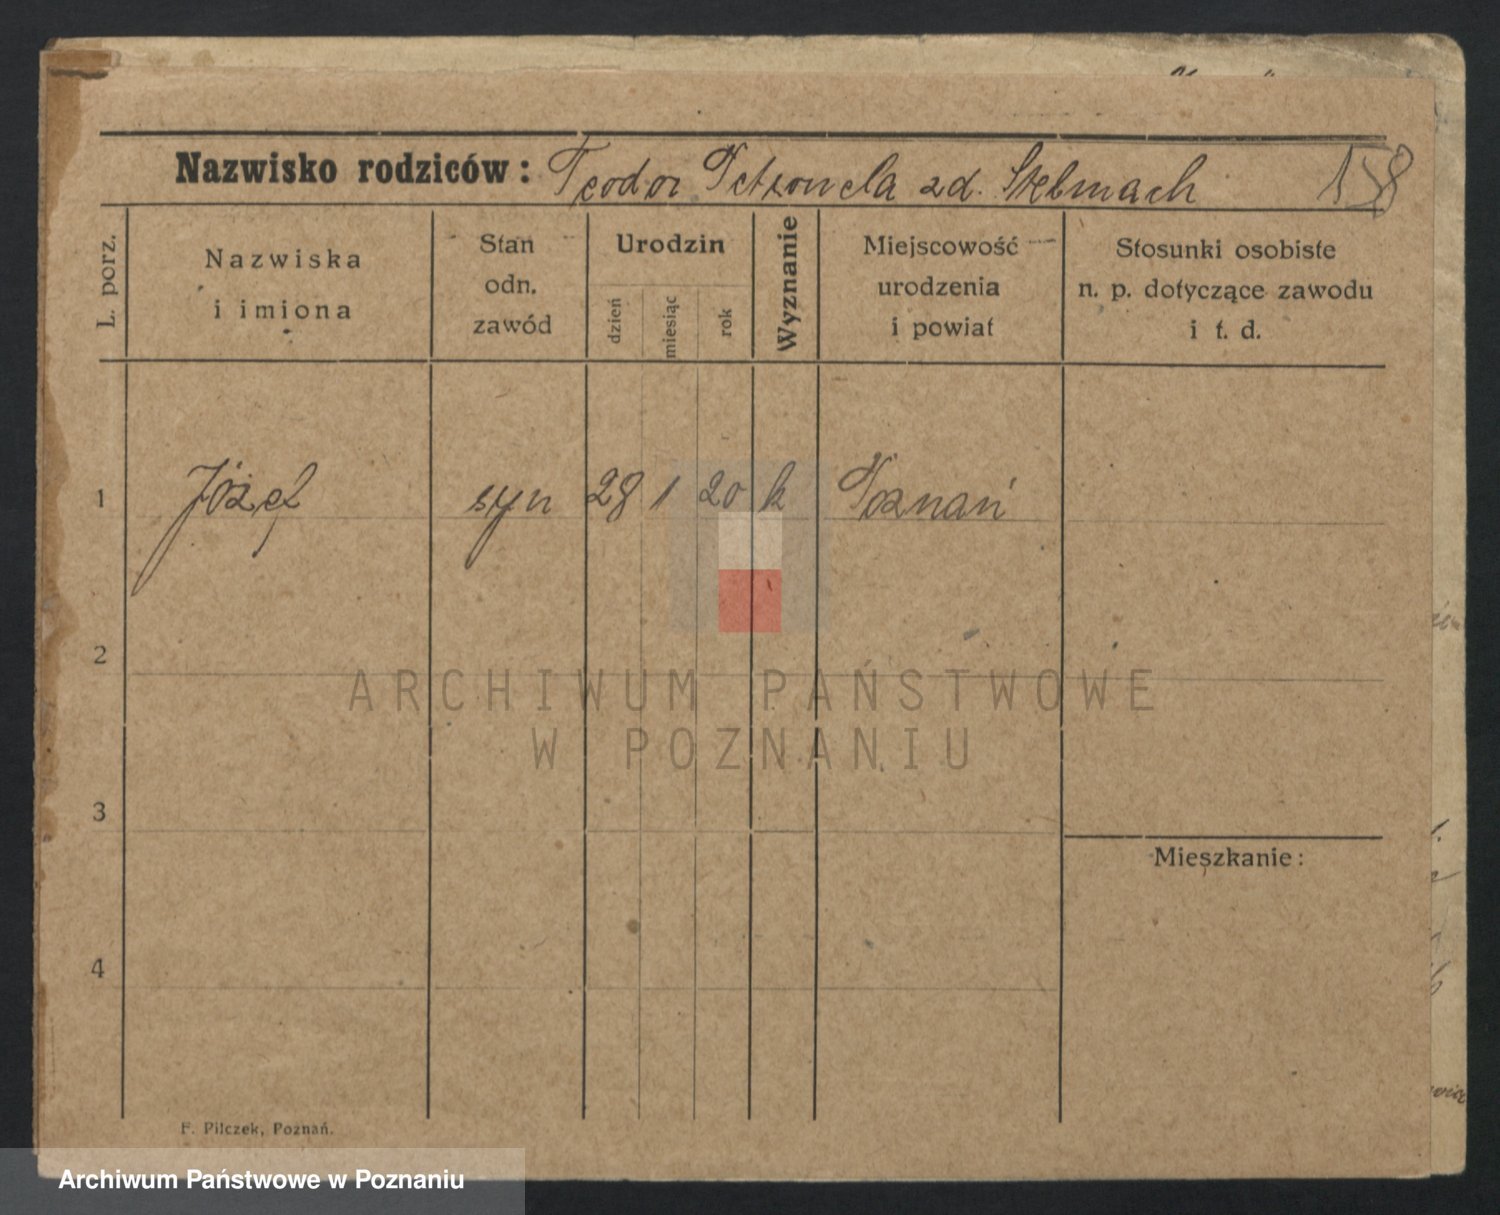 Nazwisko rodziców: Teodor Petronela zd. Stelmach 158
L. porz.
Nazwiska
i imiona
Stan
odn.
zawód
Urodzin
dzień
miesiąc
rok
Wyznanie
Miejscowość
urodzenia
i powiat
Stosunki osobiste
n. p. dotyczące zawodu
i t. d.
1 Józef syn 28 1 20 k Poznań
2
ARCHIWUM PAŃSTWOWE
W POZNANIU
3
Mieszkanie:
4
F. Pilczek, Poznań.
Archiwum Państwowe w Poznaniu